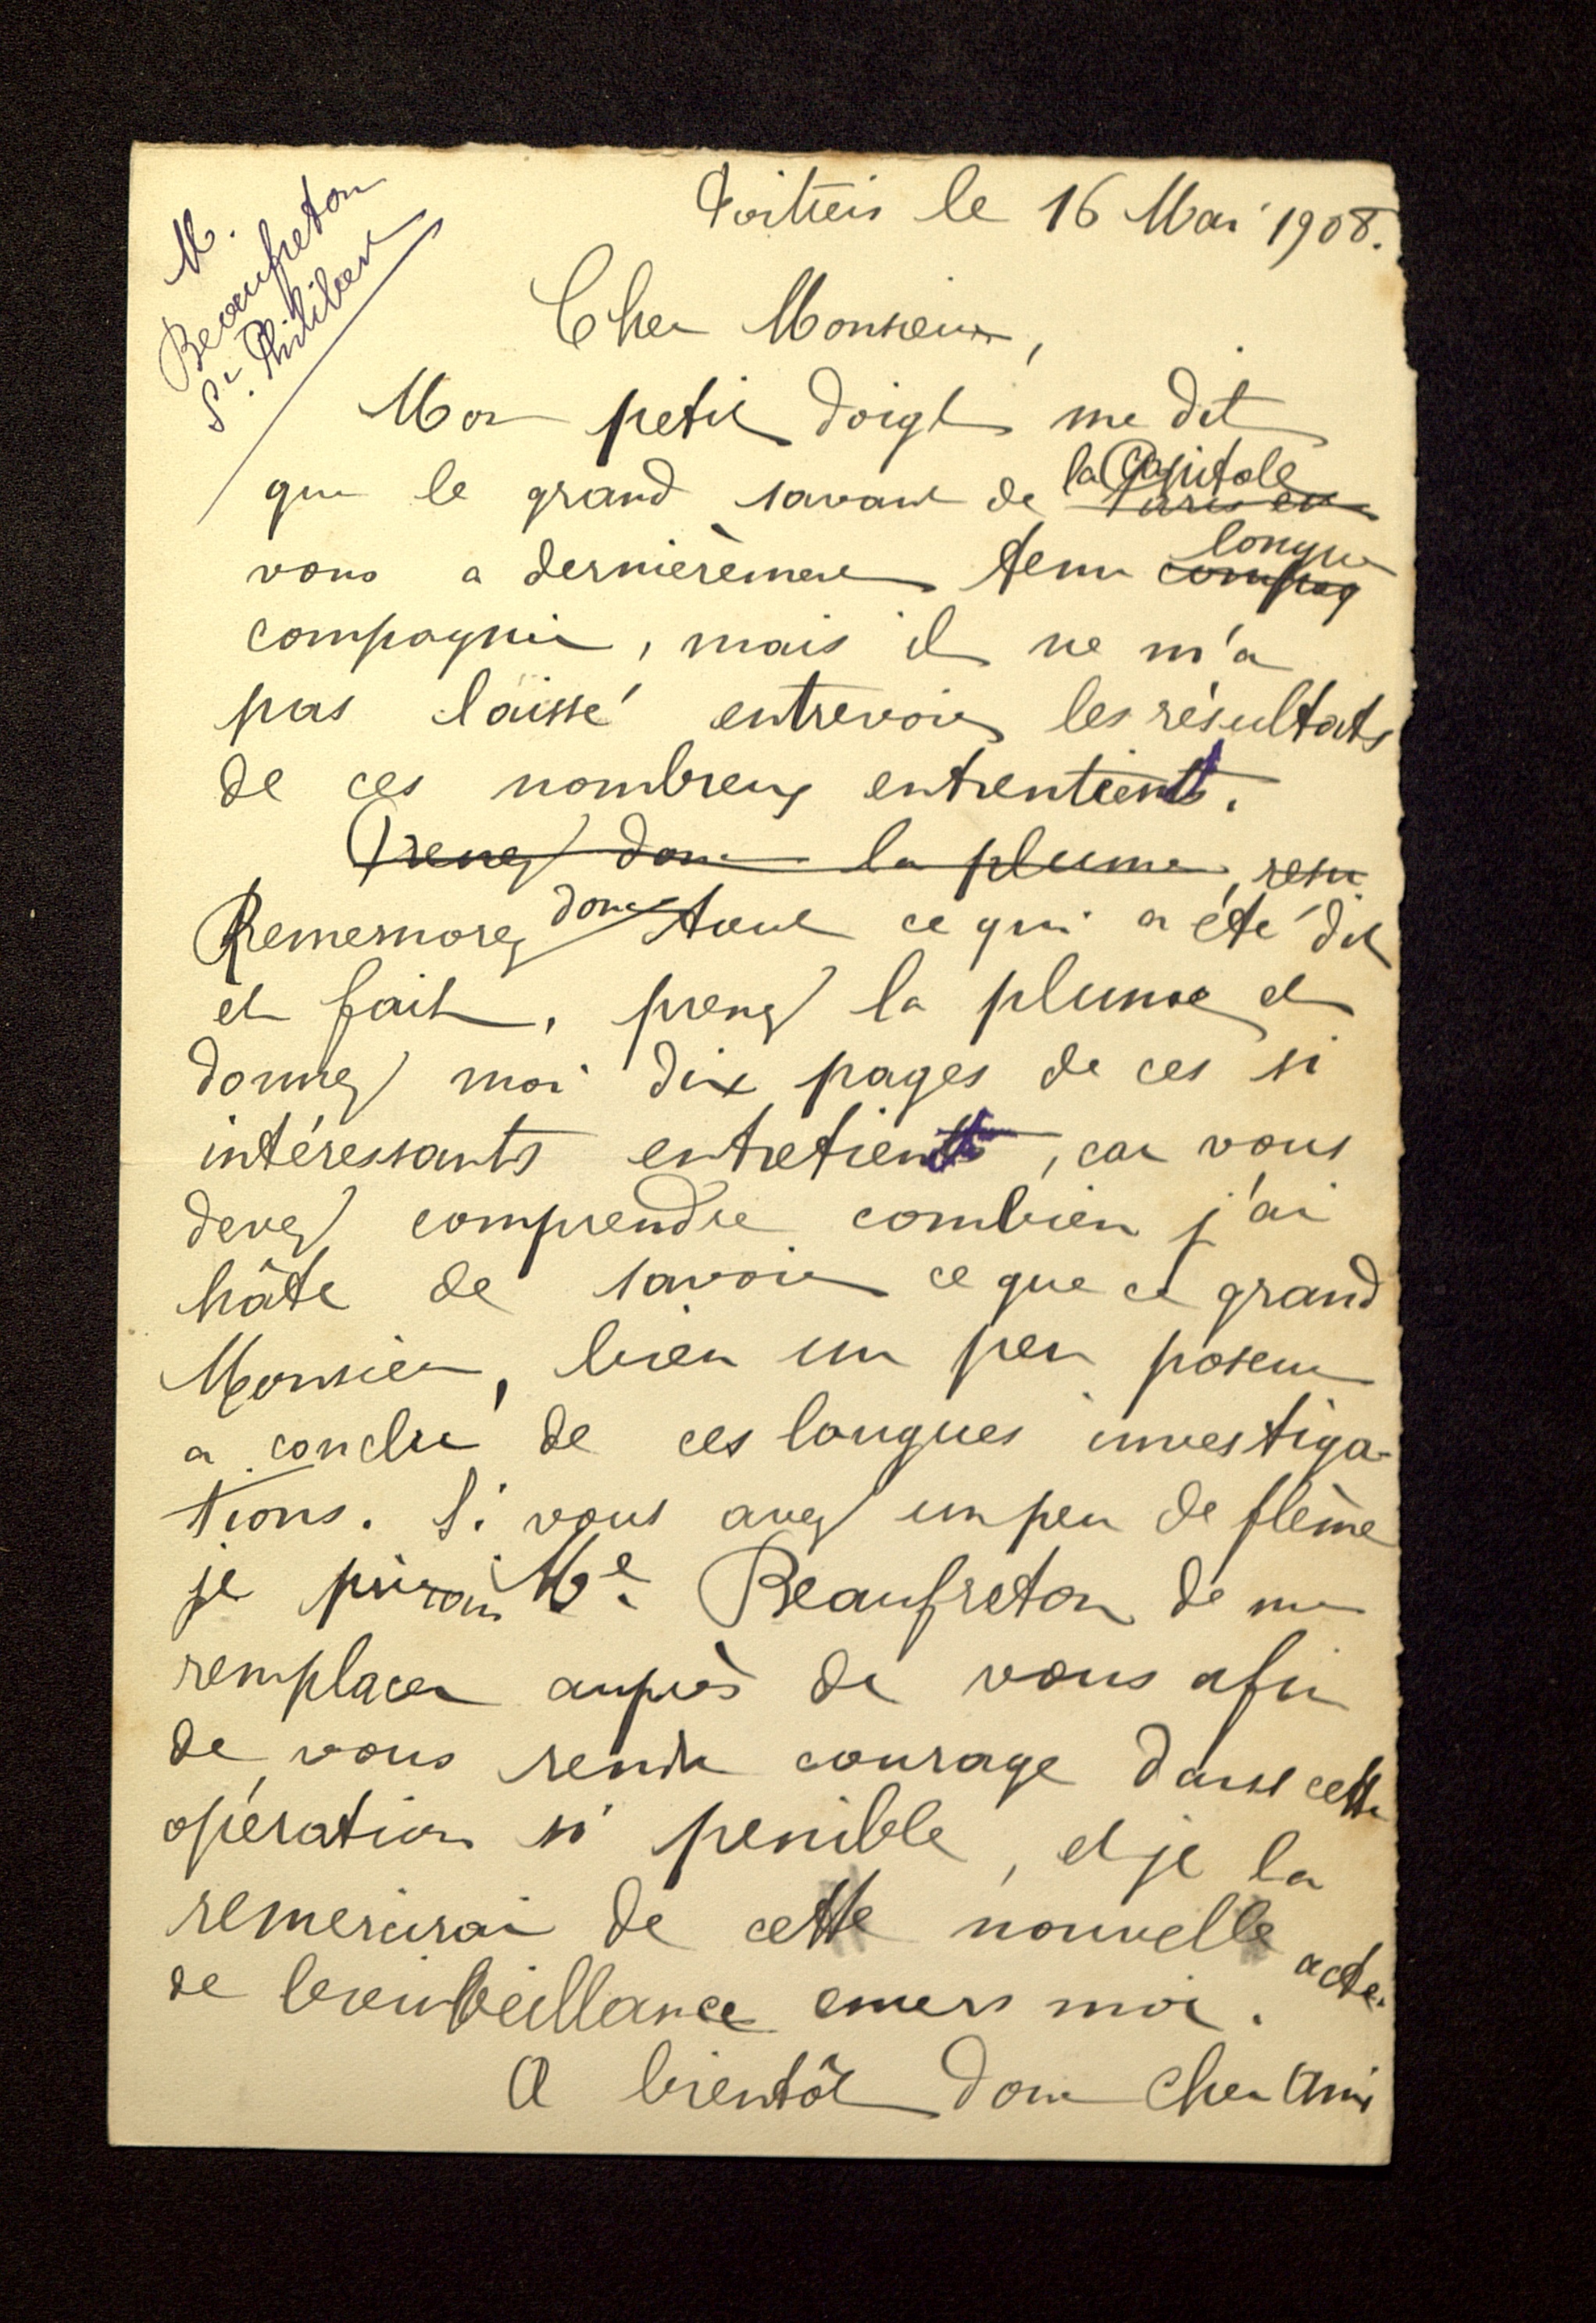 M.
Beaufreton
St. Philibert
Poitiers le 16 Mai 1908.
Cher Monsieur,
Mon petit doigt me dit
la Capitale
que le grand savant de Paris en
longue
vous a dernièrement tenu compag
compagnie, mais il ne m'a
pas laissé entrevoir les résultats
de ces nombreux entrentients.
Prenez donc la plume, resu
Rememorez donc tout ce qui a été dit
et fait, prenez la plume et
donnez moi dix pages de ces si
intéressants entretients, car vous
devez comprendre combien j'ai
hâte de savoir ce que ce grand
Monsieur, bien un peu poseur
a conclu de ces longues investiga-
tions. Si vous avez un peu de flème
je prierai Me. Beaufreton de me
remplacer auprès de vous afin
de vous rendre courage dans cette
opération si penible, et je la
remercirai de cette nouvelle acte
de bienveillance envers moi.
A bientôt donc cher Ami